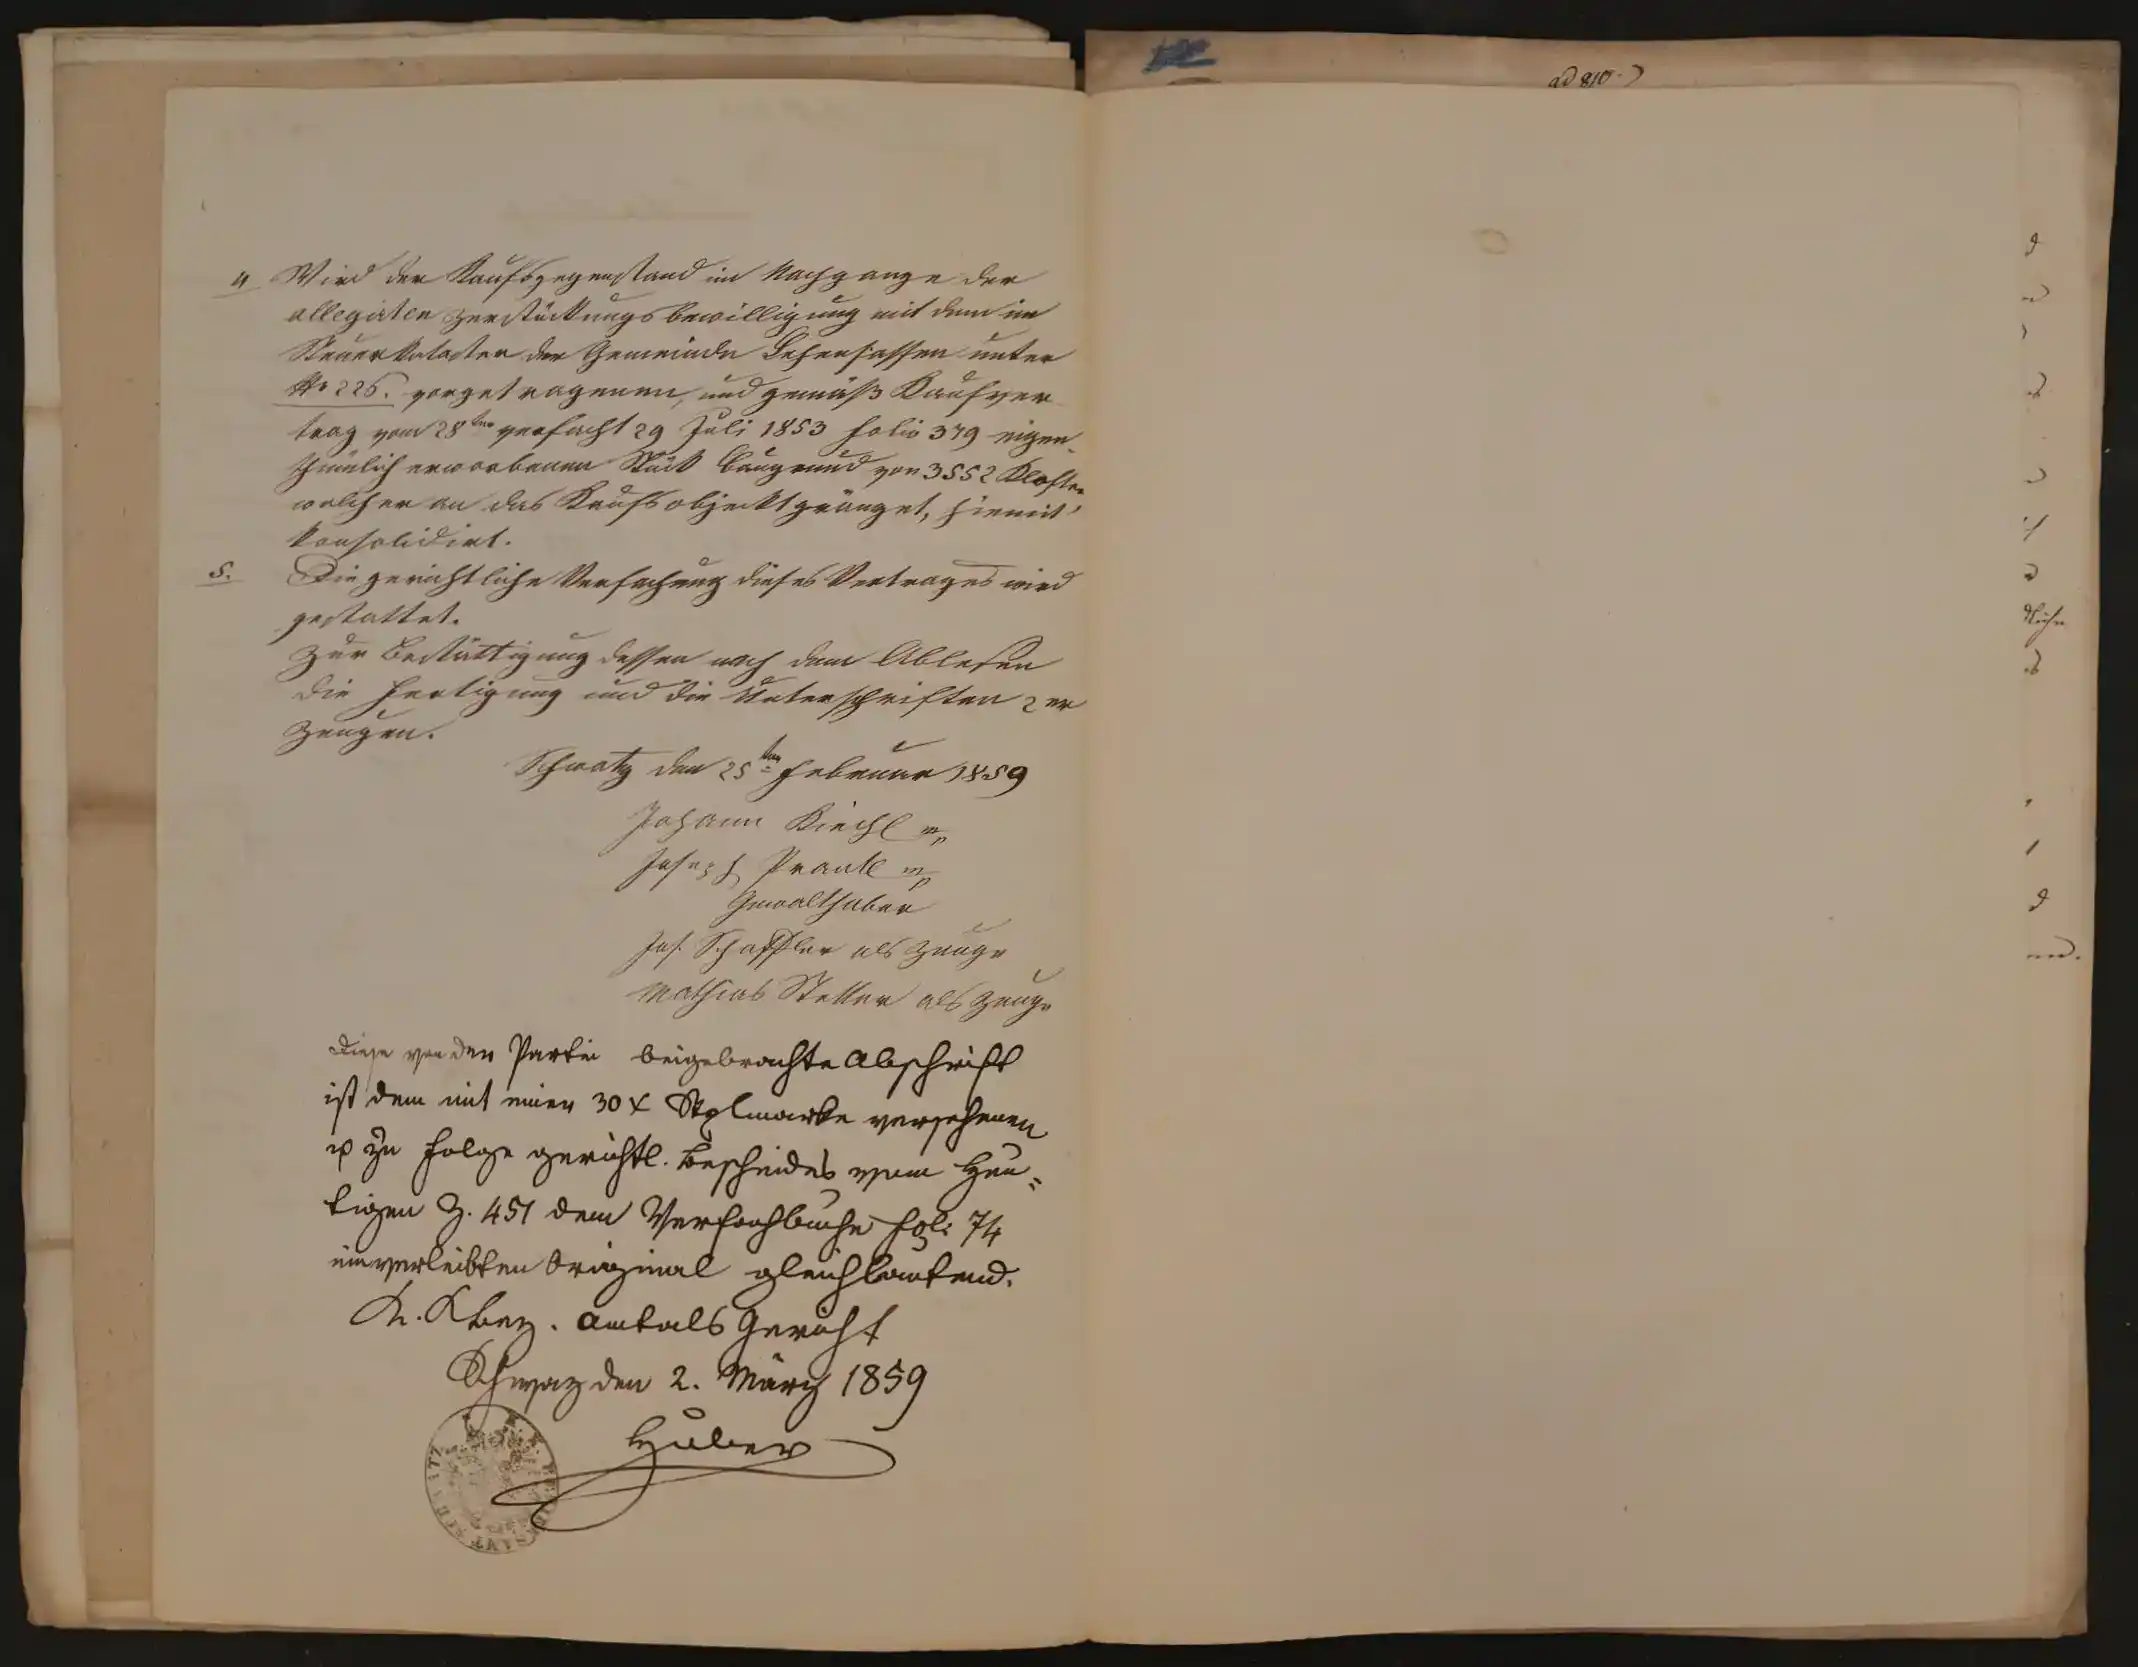 ad 810.
4 Wird der Kaufsgegenstand im Nachgange der
allegirten Zerstückungsbewilligung mit dem im
Steuerkataster der Gemeinde Lehensassen unter
Nr 226. vorgetragenen, und gemäß Kaufver
trag vom 28ten verfacht 29 Juli 1853 folio 379 eigen-
thümlich erworbenen Stück Baugrund von 3552 Klafter
welcher an das Kaufsobjekt gränzet, hiemit
konsolidirt.
5. Die gerichtliche Verfachung dieses Vertrages wird
gestattet.
Zur Bestättigung dessen nach dem Ablesen
die Fertigung und die Unterschriften 2er
Zeugen.
Schwatz den 25ten Februar 1859
Johann Kiechl mp
Joseph Prantl mp
Gewalthaber
Jos. Schaffler als Zeuge
Mathias Steller als Zeuge
Diese von der Partei beigebrachte Abschrift
ist dem mit einer 30 x Stplmarke versehenen
u zu Folge gerichtl. Bescheides vom Heu=
tigen Z. 451 dem Verfachbuche fol: 74
einverleibten Original gleichlautend.
K. K. Bez. Amt als Gericht
Schwaz den 2. März 1859
Huber